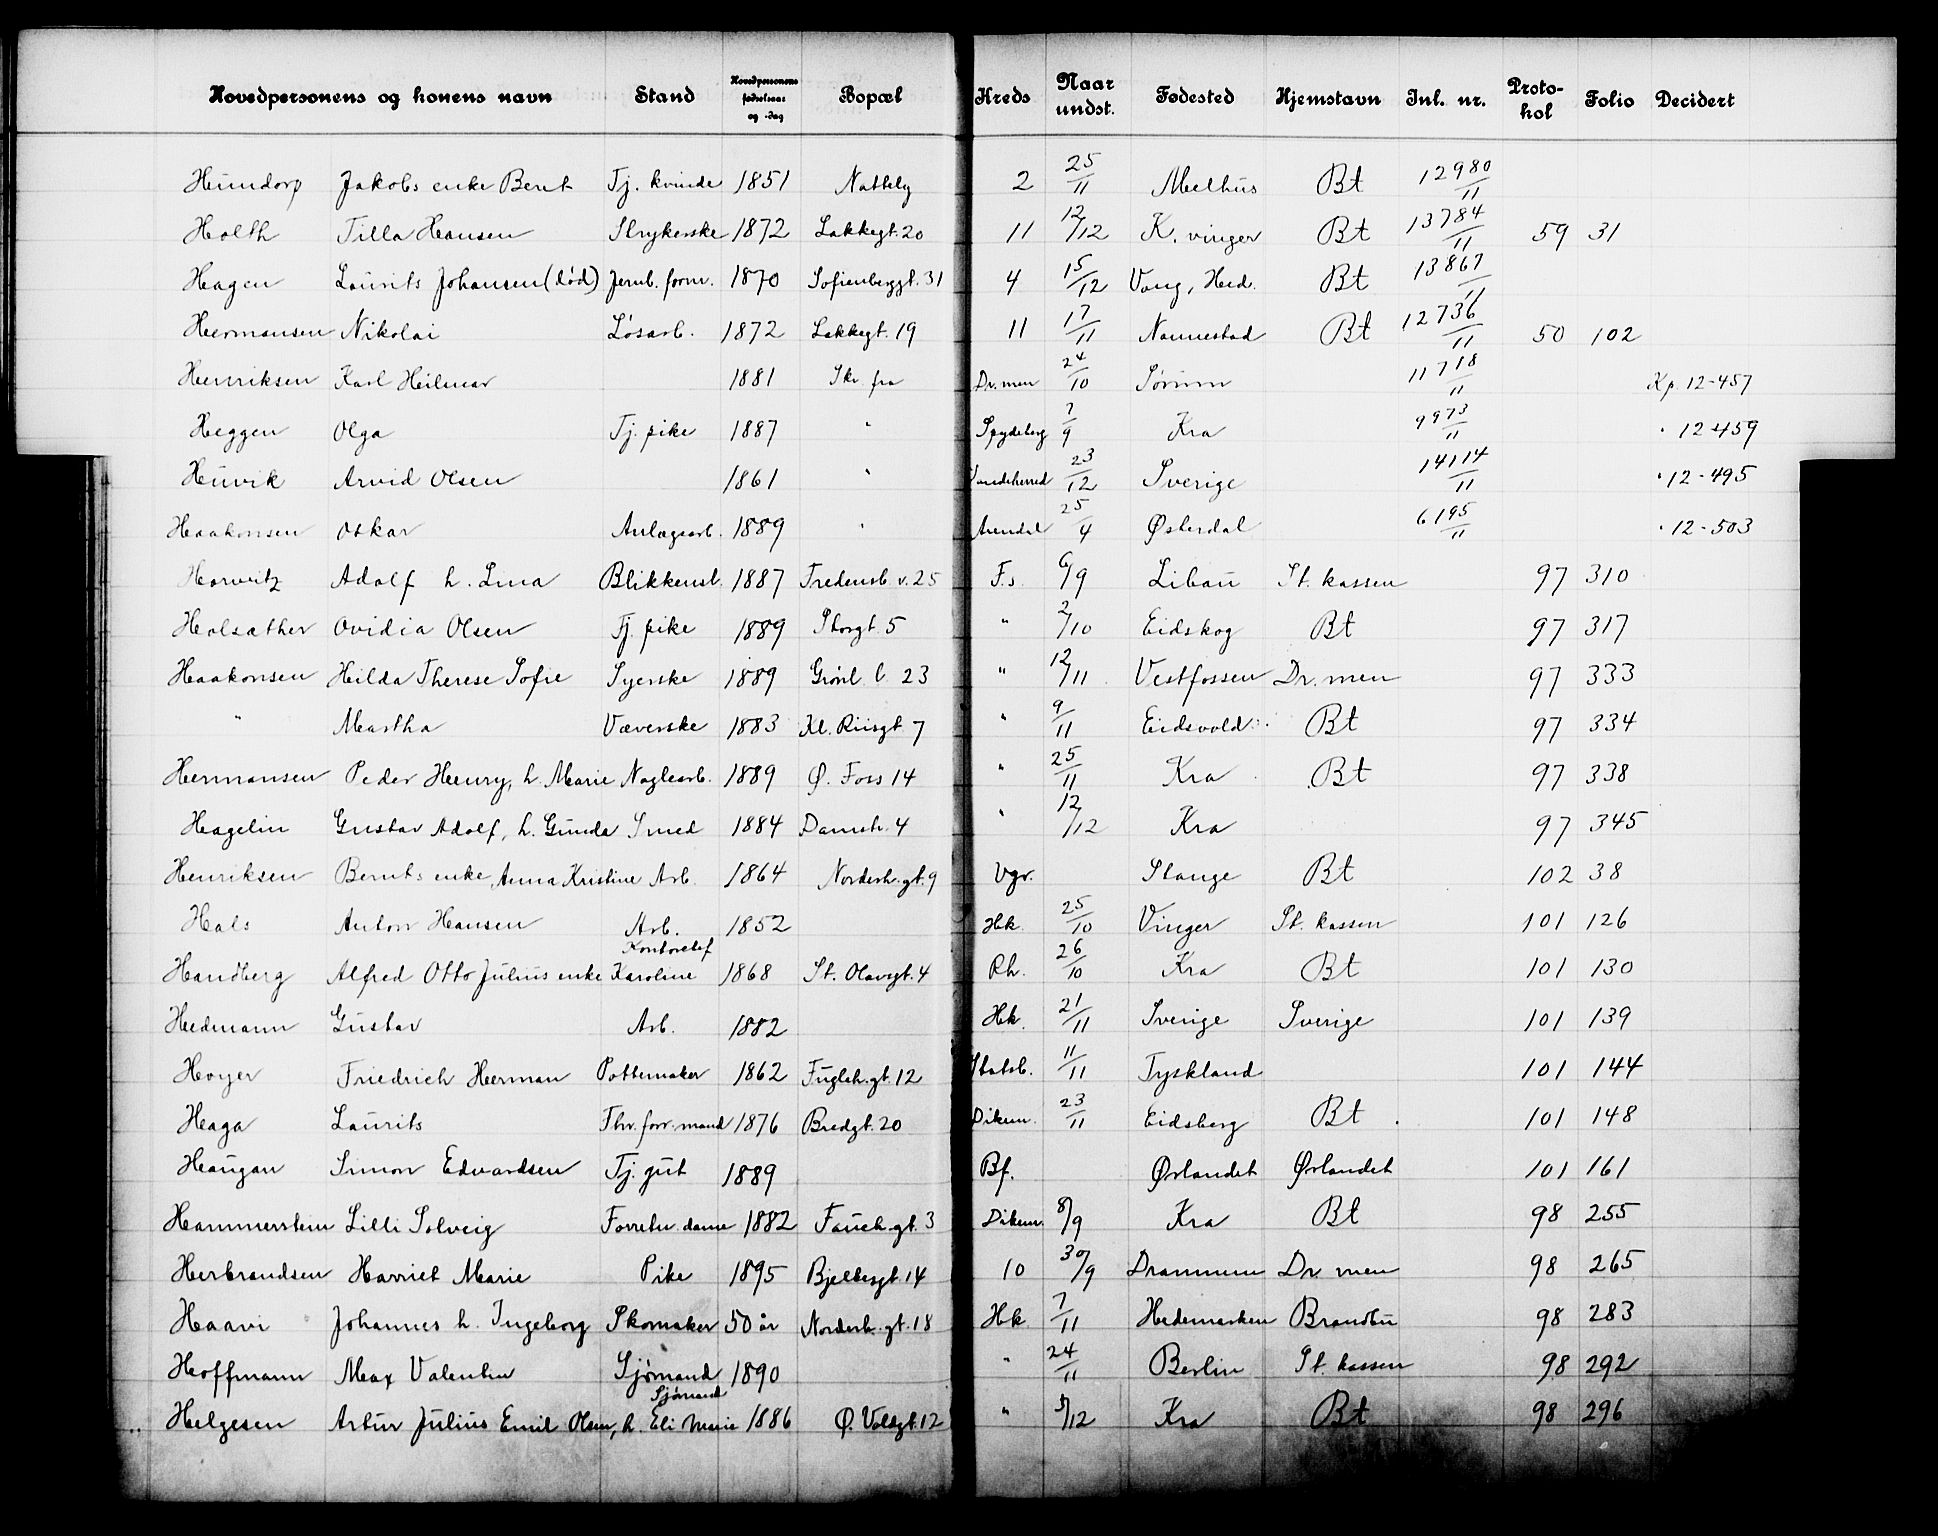 Hovedpersonens og konens navn Stand Hovedpersonens fødselsaar og -dag Bopæl Kreds Naar undst. Fødested Hjemstavn Inl. nr. Proto-kol Folio Decidert
Hundorp Jakobs enke Berit Tj. kvinde 1851 Nattely 2 25/11 Melhus Bt 12980/11
Holth Tilla Hansen Strykerske 1872 Lakkegt. 20 11 12/12 K. vinger Bt 13784/11 59 31
Hagen Laurits Johansen (død) Jernb. form. 1870 Sofienberggt. 31 4 15/12 Vang, Hed. Bt 13867/11
Hermansen Nikolai Løsarb. 1872 Lakkegt. 19 11 17/11 Nannestad Bt 12736/11 50 102
Henriksen Karl Hilmar 1881 Skr. fra Dr. men 24/10 Sørum 11718/11 Kp. 12-457
Heggen Olga Tj. pike 1887 " Spydeberg 7/9 Kra 9973/11 " 12-459
Huvik Arvid Olsen 1861 " Sandeherred 23/12 Sverige 14114/11 " 12-495
Haakonsen Oskar Anlægsarb. 1889 " Arendal 25/4 Østerdal 6195/11 " 12-503
Horwitz Adolf h. Lina Blikkensl. 1887 Fredensb. v. 25 F.s. 6/9 Libau St. kassen 97 310
Holsæther Ovidia Olsen Tj. pike 1889 Storgt. 5 " 2/10 Eidskog Bt 97 317
Haakonsen Hilda Therese Sofie Syerske 1889 Grønl. l. 23 " 12/11 Vestfossen Dr. men 97 333
" Martha Væverske 1883 Kl. Riisgt 7 " 9/11 Eidsvold Bt 97 334
Hermansen Peder Henry, h. Marie Naglearb. 1889 Ø. Foss 14 " 25/11 Kra Bt 97 338
Hagelin Gustav Adolf, h. Gunda Smed 1884 Damstr. 4 " 12/12 Kra 97 345
Henriksen Bernts enke, Anna Kristine Arb. 1864 Norderh. gt. 9 Vgr. Stange Bt 102 38
Hals Anton Hansen Arb. 1852 Hk. 25/10 Vinger St. kassen 101 126
Handberg Alfred Otto Julius enke Karoline Kontorchef 1868 St. Olavsgt. 4 Rh. 26/10 Kra Bt 101 130
Hedmann Gustav Arb. 1882 Hk. 21/11 Sverige Sverige 101 139
Hoyer Friedrich Herman Pottemaker 1862 Fugleh. gt. 12 Statsb. 11/11 Tyskland 101 144
Haga Laurits Thv. forr. mand 1876 Bredgt. 20 Dikem. 23/11 Eidsberg Bt 101 148
Haugan Simon Edvardsen Tj. gut 1889 Bf. Ørlandet Ørlandet 101 161
Hammerstein Lilli Solveig Forretn. dame 1882 Fauch. gt. 3 Dikem. 8/9 Kra Bt 98 255
Herbrandsen Harriet Marie Pike 1895 Bjelkesgt. 14 10 30/9 Drammen Dr. men 98 265
Haavi Johannes h. Ingeborg Skomaker 50 år Norderh. gt. 18 Hk. 7/11 Hedemarken Brandbu 98 283
Hoffmann Max Valentin Sjømand 1890 " 24/11 Berlin St. kassen 98 292
Helgesen Artur Julius Emil Olsen, h. Eli Marie Sjømand 1886 Ø. Voldgt. 12 " 5/12 Kra Bt 98 296